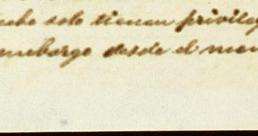 solo tienen privileg
embargo desde el mom